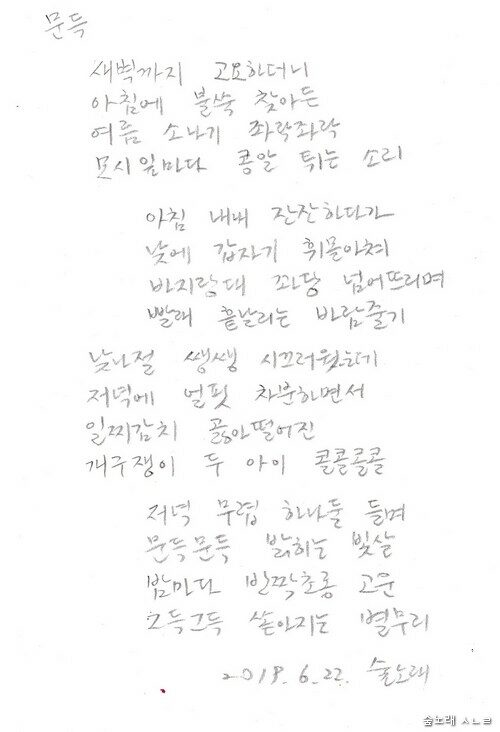 문득
새벽까지 고요하더니
아침에 불쑥 찾아든
여름 소나기 좌락좌락
모시잎마다 콩알 튀는 소리
아침 내내 잔잔하다가
낮에 갑자기 휘몰아쳐
바지랑대 꽈당 넘어뜨리며
빨래 흩날리는 바람줄기
낮나절 쌩쌩 시끄러웠하기
저녁에 얼핏 차분하면서
일찌감치 곯아떨어진
개구쟁이 두 아이 콜콜콜콜
저녁 무렵 하나둘 들며
문득문득 밝히는 빛살
밤마다 반짝초롱 고운
그득그득 쏟아지는 별무리
2018. 6. 22. 숲노래
숲노래 ㅅㄴㄹ